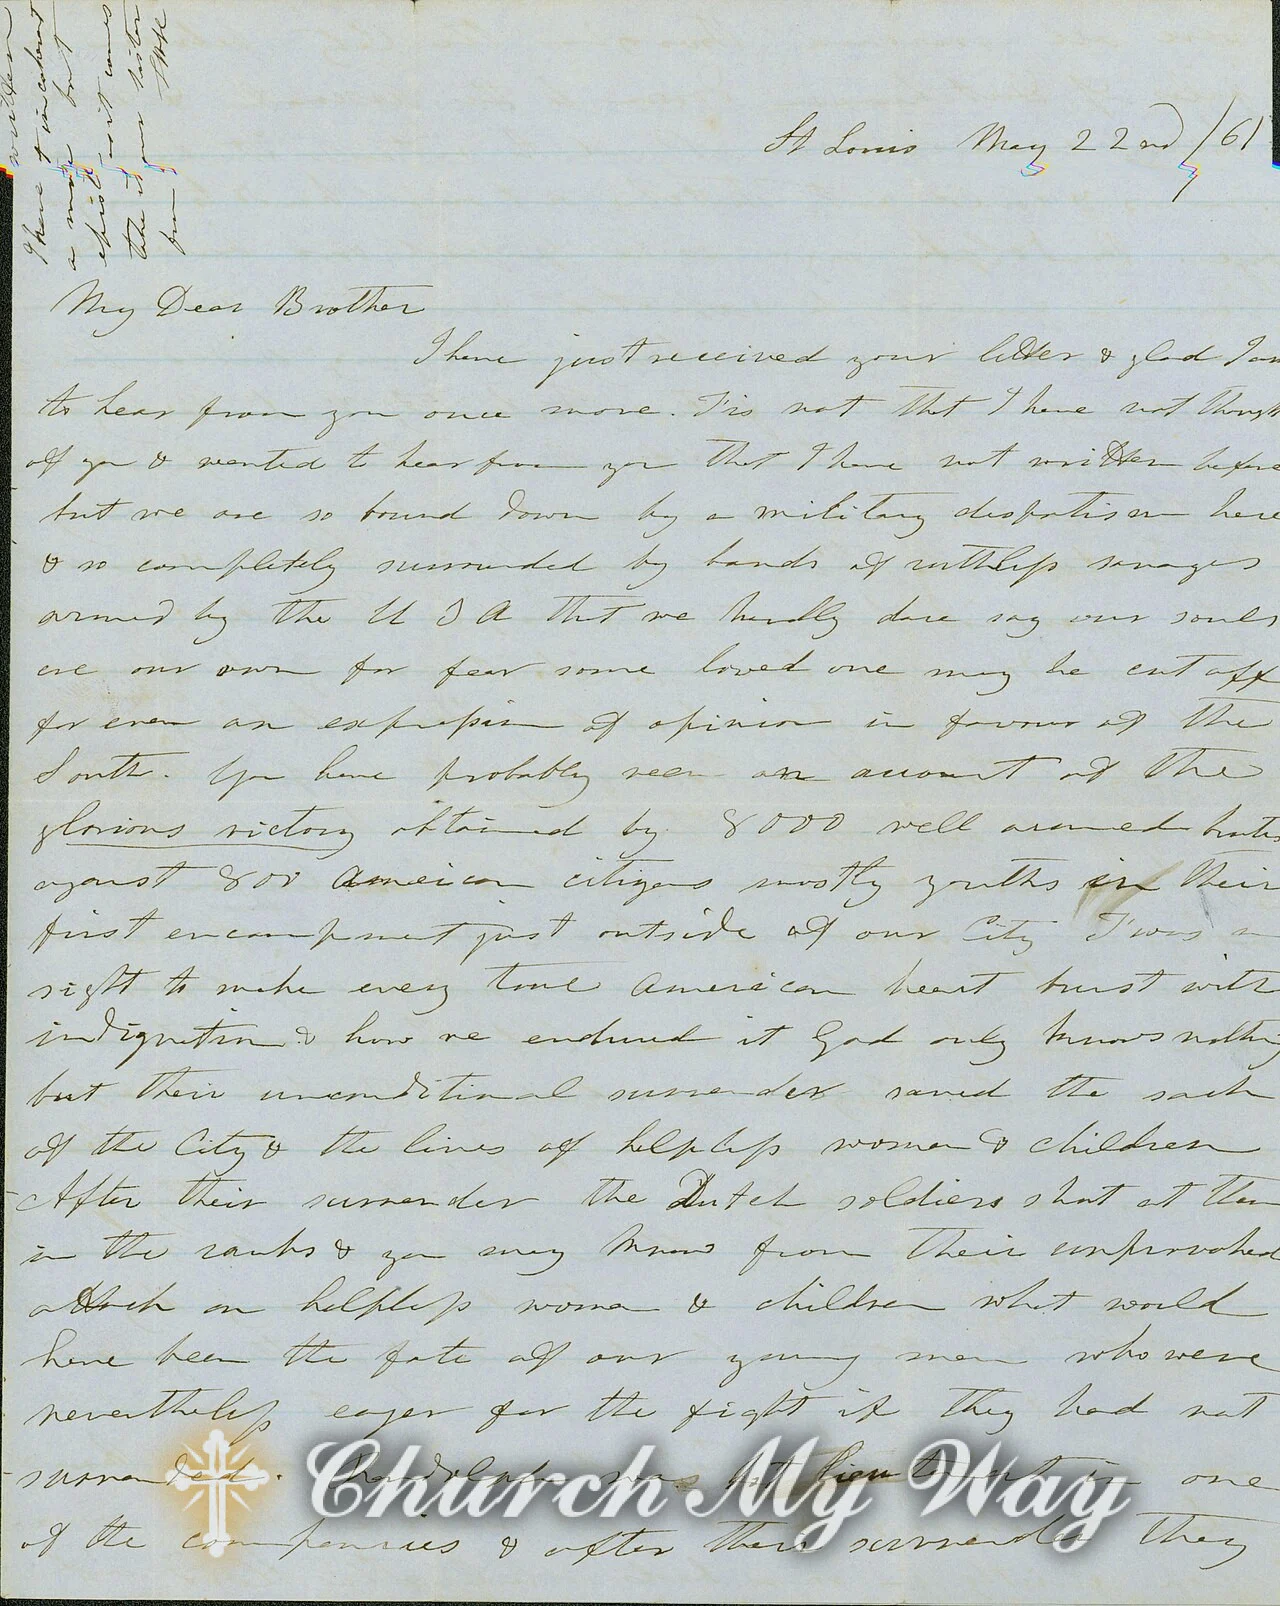 written
I have
a more but
take it
from
St Louis May 22nd /61
My Dear Brother
I have just received your letter & glad I am
to hear from you once more. T'is not that I have not thought
of you & wanted to hear from you that I have not written before
but we are so bound down by a military despotism here
& so completely surrounded by bands of ruthless savages
armed by the U S A that we hardly dare say our souls
are our own for fear some loved one may be cut off
for even an expression of opinion in favour of the
South. You have probably seen an account of the
glorious victory obtained by 8000 well armed brutes
against 800 American citizens mostly youths in their
first encampment just outside of our City T'was a
sight to make every true American heart burst with
indignation & how we endured it God only knows nothing
but their unconditional surrender saved the sack
of the City & the lives of helpless women & children
After their surrender the Dutch soldiers shot at them
in the ranks & you may know from their unprovoked
attack on helpless women & children what would
have been the fate of our young men who were
nevertheless eager for the fight if they had not
surrended. was 1st Lieutenant in one
of the companies & after their surrender they
Church My Way